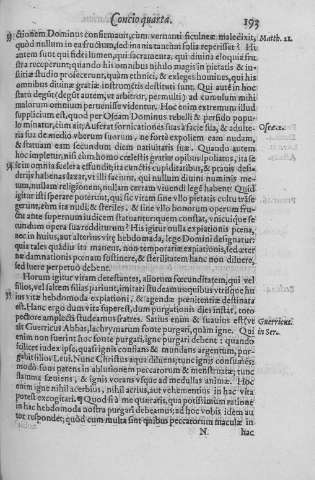 Concio quarta. 193
ctionem Dominus consummauit, cùm vernanti ficulneæ maledixit, Matth. 21.
quòd nullum in ea fructum, sed inania tantùm folia reperisset? Hi
autem sunt qui fidei lumen, qui sacramenta, qui diuina eloquia fru-
stra receperunt, quando his omnibus nihilo magis in pietatis & iu-
stitiæ studio profecerunt, quàm ethnici, & exleges homines, qui his
omnibus diuinæ gratiæ instructis destituti sunt. Qui autē in hoc
statu degūt (degūt autem, vt arbitror, permulti) ad cumulum mihi
malorum omnium peruenisse videntur. Hoc enim extremum illud
supplicium est, quod per Oseam Dominus rebelli & perfido popu-
lo minatur, cùm ait, Auferat fornicationes suas à facie sua, & adulte- Oseæ 2.
ria sua de medio vberum suorum, ne fortè expoliem eam nudam,
& statuam eam secundum diem natiuitatis suæ. Quando autem
hoc impletur, nisi cùm homo cœlestis gratiæ opibus spoliatus, ita se
se in omnia scelera effundit, ita cunctis cupiditatibus, & prauis desi-
derijs habenas laxat, vt illi faciunt, qui nullum diuini numinis me-
tum, nullam religionem, nullam certam viuendi legē habent? Quid
igitur isti sperare poterunt, qui sic vitam sine vllo pietatis cultu trāse-
gerunt, cùm ita nudi, & steriles, & sine vllo bonorum operum fru-
ctu ante supernum iudicem statuantur, quem constat, vnicuique se-
cundum opera sua redditurum? His igitur nulla expiationis pœna,
nec in huius, aut alterius vitę hebdomada, lege Domini designatur:
quia tales quādiu ita manent, non temporariæ expiationis, sed æter
næ damnationis pœnam sustinere, & sterilitatem hanc non diluere,
sed luere perpetuò debent.
Horum igitur vitam detestantes, aliorum fœcunditatem, qui vel
filios, vel saltem filias pariunt, imitari studeamus: quibus vtrisque hu-
ius vitæ hebdomada expiationi, & agendæ pœnitentiæ destinata
est. Hanc ergo dum vita superest, dum purgationis dies instat, toto
pectore amplecti studeamus fratres. Satius enim & suauius est (vt
ait Guerricus Abbas, lachrymarum fonte purgari, quàm igne. Qui Guerricus in Ser.
enim non fuerint hoc fonte purgati, igne purgari debent: quando
scilicet iudex ipse, quasi ignis conflans & mundans argentum, pur-
gabit filios Leui. Nunc Christus aqua diluens, tunc ignis consumēs:
modò fons patens in ablutionem peccatorum & menstruatæ; tunc
flamma sæuiens, & ignis vorans vsque ad medullas animæ. Hoc
enim igne nihil acerbius, nihil acrius, aut vehementius in hac vita
potest excogitari. ¶ Quòd si à me quæratis, qua potissimùm ratione
in hac hebdomada nostra purgari debeamus; ad hoc vobis idem au
tor respondet, quòd cum multa sint quibus peccatorum maculæ in
N. hac